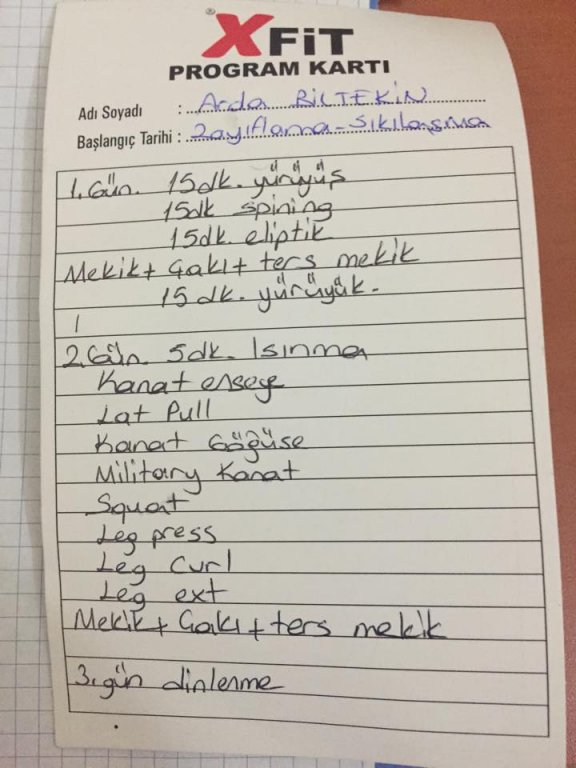 ® XFiT
PROGRAM KARTI
Adı Soyadı : Arda BİLTEKİN
Başlangıç Tarihi : Zayıflama-Sıkılaşma
1. Gün. 15dk. yürüyüş
15dk spining
15dk. eliptik
Mekik+ Çakı+ ters mekik
15 dk. yürüyük.
2.Gün. 5dk. Isınma
Kanat enseye
Lat Pull
Kanat Göğüse
Military Kanat
Squat
Leg press
Leg Curl
Leg ext
Mekik+ Çakı+ ters mekik
3. gün dinlenme